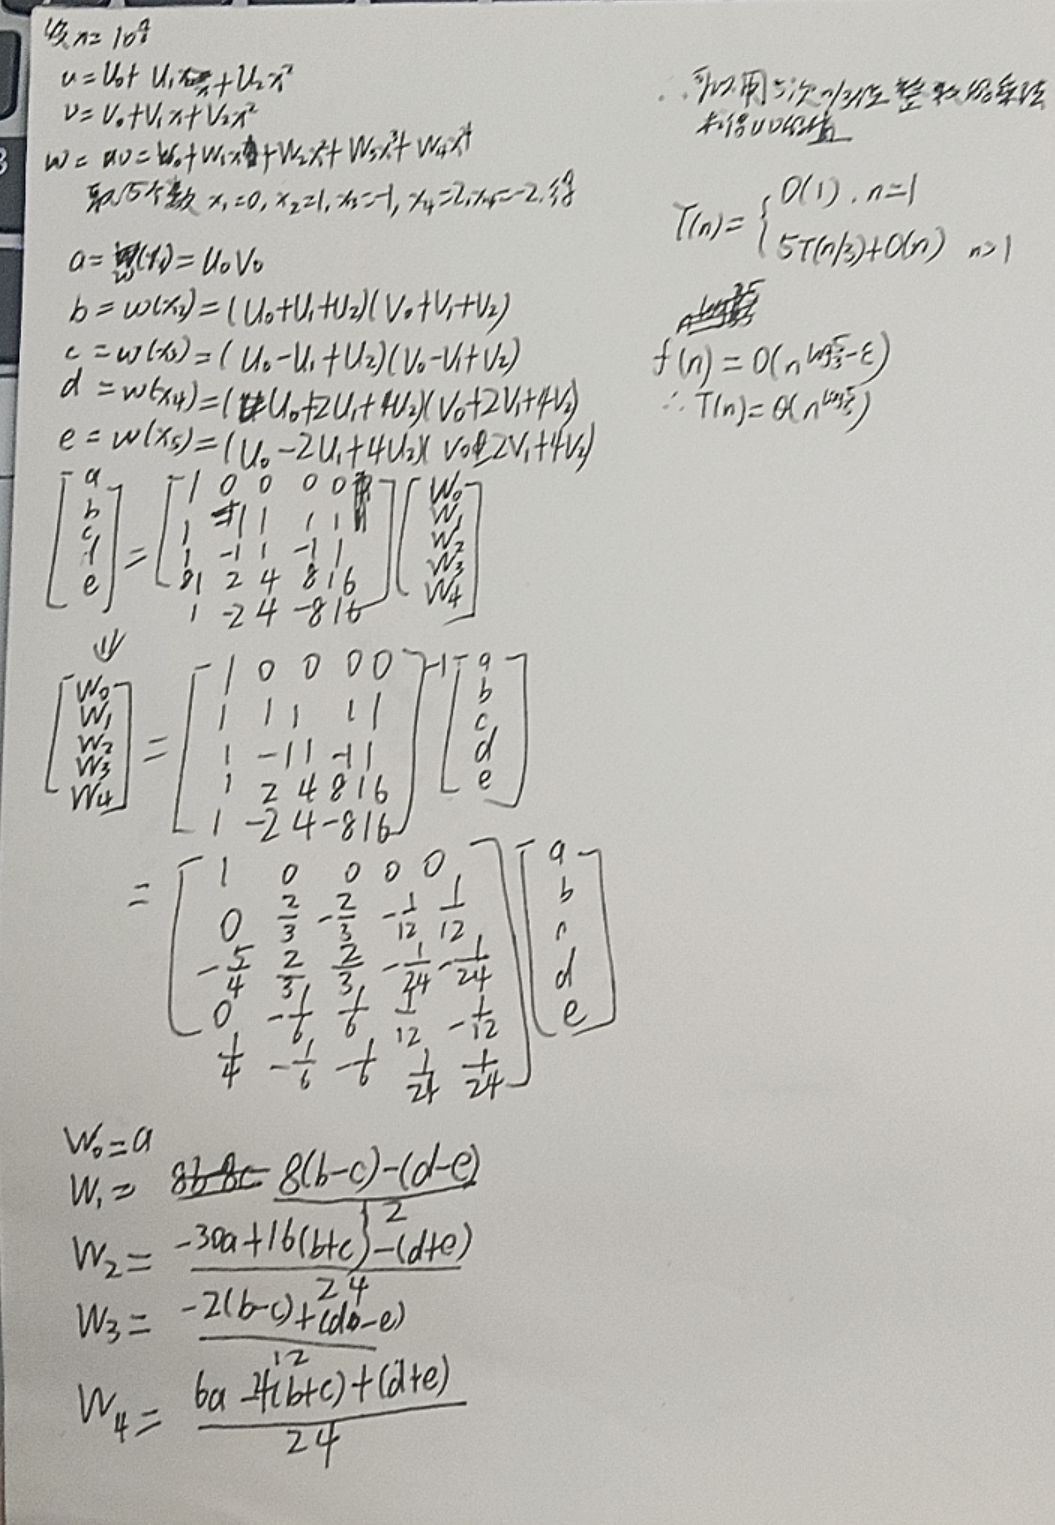 设 x = 10^{n/3}
u = U₀ + U₁x + U₂x²
v = V₀ + V₁x + V₂x²
w = uv = W₀ + W₁x + W₂x² + W₃x³ + W₄x⁴
取5个数 x₁=0, x₂=1, x₃=-1, x₄=2, x₅=-2. 得
a = w(x₁) = U₀V₀
b = w(x₂) = (U₀+U₁+U₂)(V₀+V₁+V₂)
c = w(x₃) = (U₀-U₁+U₂)(V₀-V₁+V₂)
d = w(x₄) = (U₀+2U₁+4U₂)(V₀+2V₁+4V₂)
e = w(x₅) = (U₀-2U₁+4U₂)(V₀-2V₁+4V₂)
a 1 0 0 0 0 W₀
b 1 1 1 1 1 W₁
c = 1 -1 1 -1 1 W₂
d 1 2 4 8 16 W₃
e 1 -2 4 -8 16 W₄
⇓
W₀ 1 0 0 0 0 -1 a
W₁ 1 1 1 1 1 b
W₂ = 1 -1 1 -1 1 c
W₃ 1 2 4 8 16 d
W₄ 1 -2 4 -8 16 e
= 1 0 0 0 0 a
0 2/3 -2/3 -1/12 1/12 b
-5/4 2/3 2/3 -1/24 -1/24 c
0 -1/6 1/6 1/12 -1/12 d
1/4 -1/6 -1/6 1/24 1/24 e
W₀ = a
W₁ = 8(b-c)-(d-e) / 12
W₂ = -30a+16(b+c)-(d+e) / 24
W₃ = -2(b-c)+(d-e) / 12
W₄ = 6a-4(b+c)+(d+e) / 24
∴ 可以用5次n/3位整数的乘法
求得uv的值
T(n) = { O(1), n=1
5T(n/3)+O(n) n>1
f(n) = O(n^{log₃5-ε})
∴ T(n) = θ(n^{log₃5})